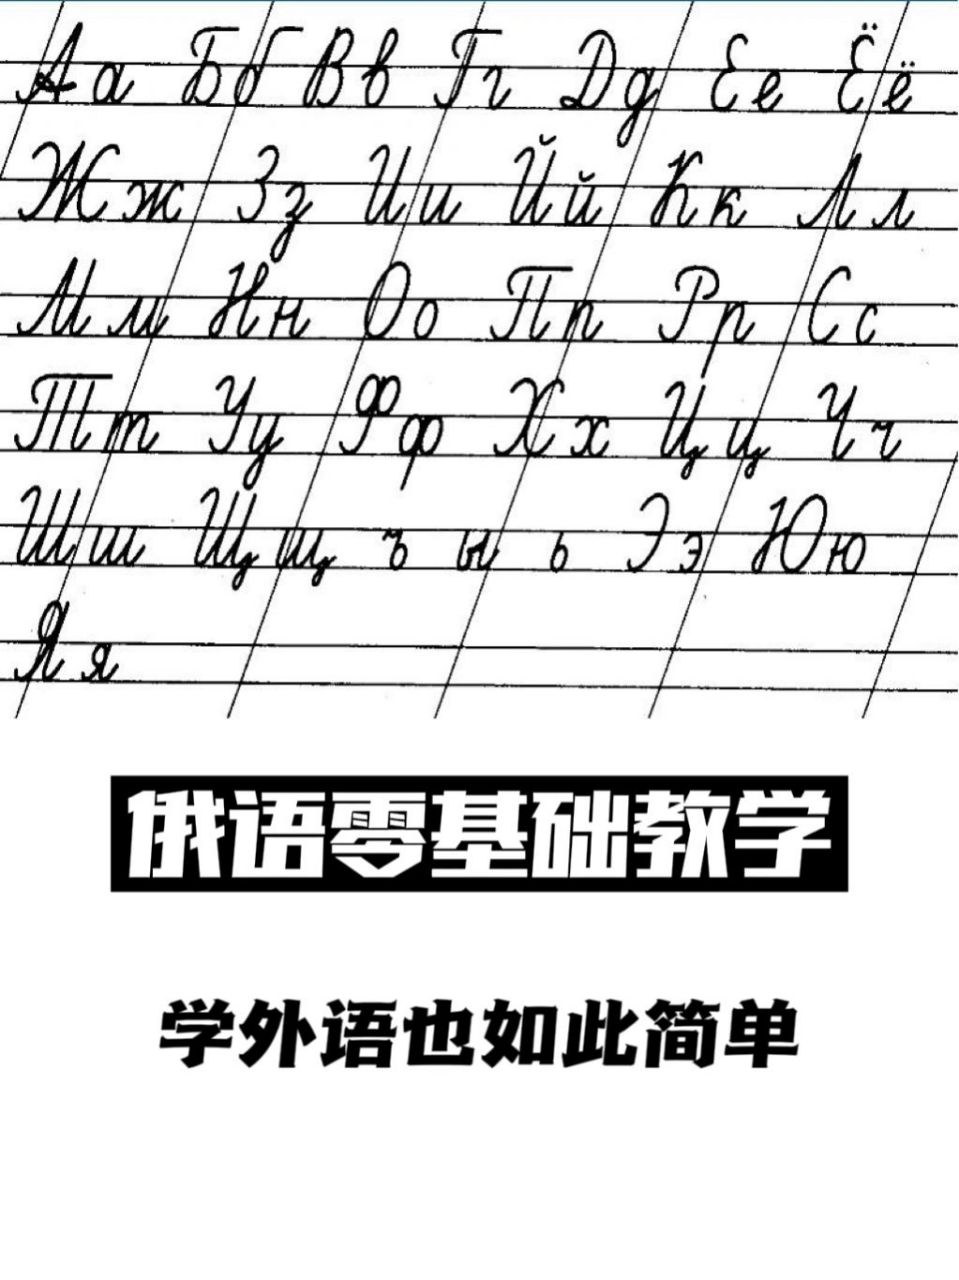 Аа Бб Вв Гг Дд Ее Ёё
Жж Зз Ии Йй Кк Лл
Мм Нн Оо Пп Рр Сс
Тт Уу Фф Хх Цц Чч
Шш Щщ ъ ы ь Ээ Юю
Яя
俄语零基础教学
学外语也如此简单